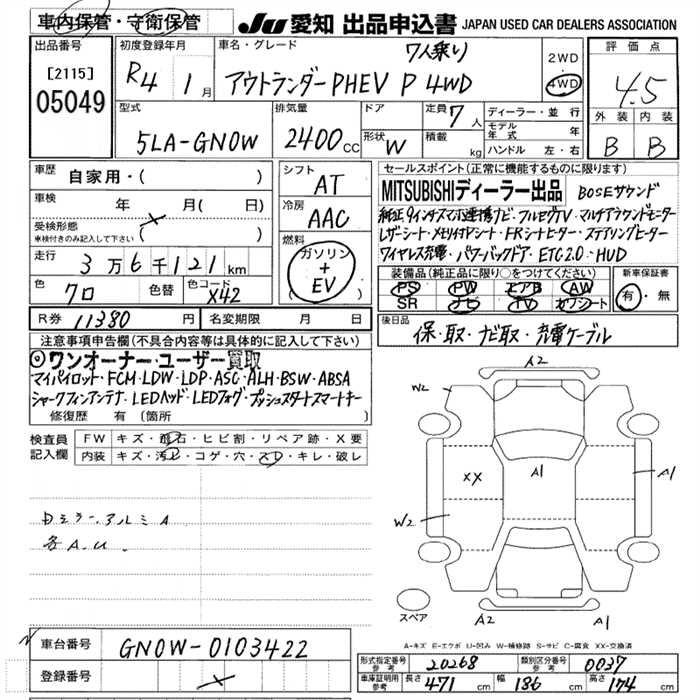 車内保管・守衛保管
JU 愛知 出品申込書 JAPAN USED CAR DEALERS ASSOCIATION
出品番号
[2115]
05049
初度登録年月
R4 1月
車名・グレード
7人乗り
アウトランダーPHEV P 4WD
2WD
4WD
評価点
4.5
外装 内装
B B
型式
5LA-GN0W
排気量
2400 CC
ドア
形状 W
定員 7人
積載 kg
ディーラー・並行
モデル年式 年
ハンドル 左・右
車歴
自家用・( )
車検 年 月( 日)
受検形態
車検付きのみ記入して下さい ( )
走行 3万6千121km
色 クロ 色替 色コード X42
シフト
AT
冷房
AAC
燃料
ガソリン
+
EV
セールスポイント(正常に機能するものに限ります)
MITSUBISHIディーラー出品 BOSEサウンド
純正9インチスマホ連携ナビ・フルセグTV・マルチアラウンドモニター
レザーシート・メモリ付Pシート・FRシートヒーター・ステアリングヒーター
ワイヤレス充電・パワーバックドア・ETC2.0・HUD
装備品(純正品に限り○をつけてください)
PS PW エアB AW
SR ナビ TV カワシート
新車保証書
有・無
R券 11380 円 名変期限 月 日
後日品
保・取・ナビ取・充電ケーブル
注意事項申告欄(不具合内容等は具体的に記入して下さい)
◎ワンオーナー・ユーザー買取
マイパイロット・FCM・LDW・LDP・ASC・ALH・BSW・ABSA
シャークフィンアンテナ・LEDヘッド・LEDフォグ・プッシュスタートスマートキー
修復歴 有 (箇所 )
検査員記入欄
FW キズ・飛石・ヒビ割・リペア跡・X要
内装 キズ・汚レ・コゲ・穴・スレ・キレ・破レ
Dミラー、アルミA
各A.U.
A2
W2
XX
A1
A1
W2
A2
A2
スペア
A-キズ E-エクボ U-凹み W-補修跡 S-サビ C-腐食 XX-交換済
車台番号 GN0W-0103422
登録番号
型式指定番号 参考 20268 類別区分番号 参考 0037
車庫証明用 参考 長さ 471 cm 幅 186 cm 高さ 174 cm